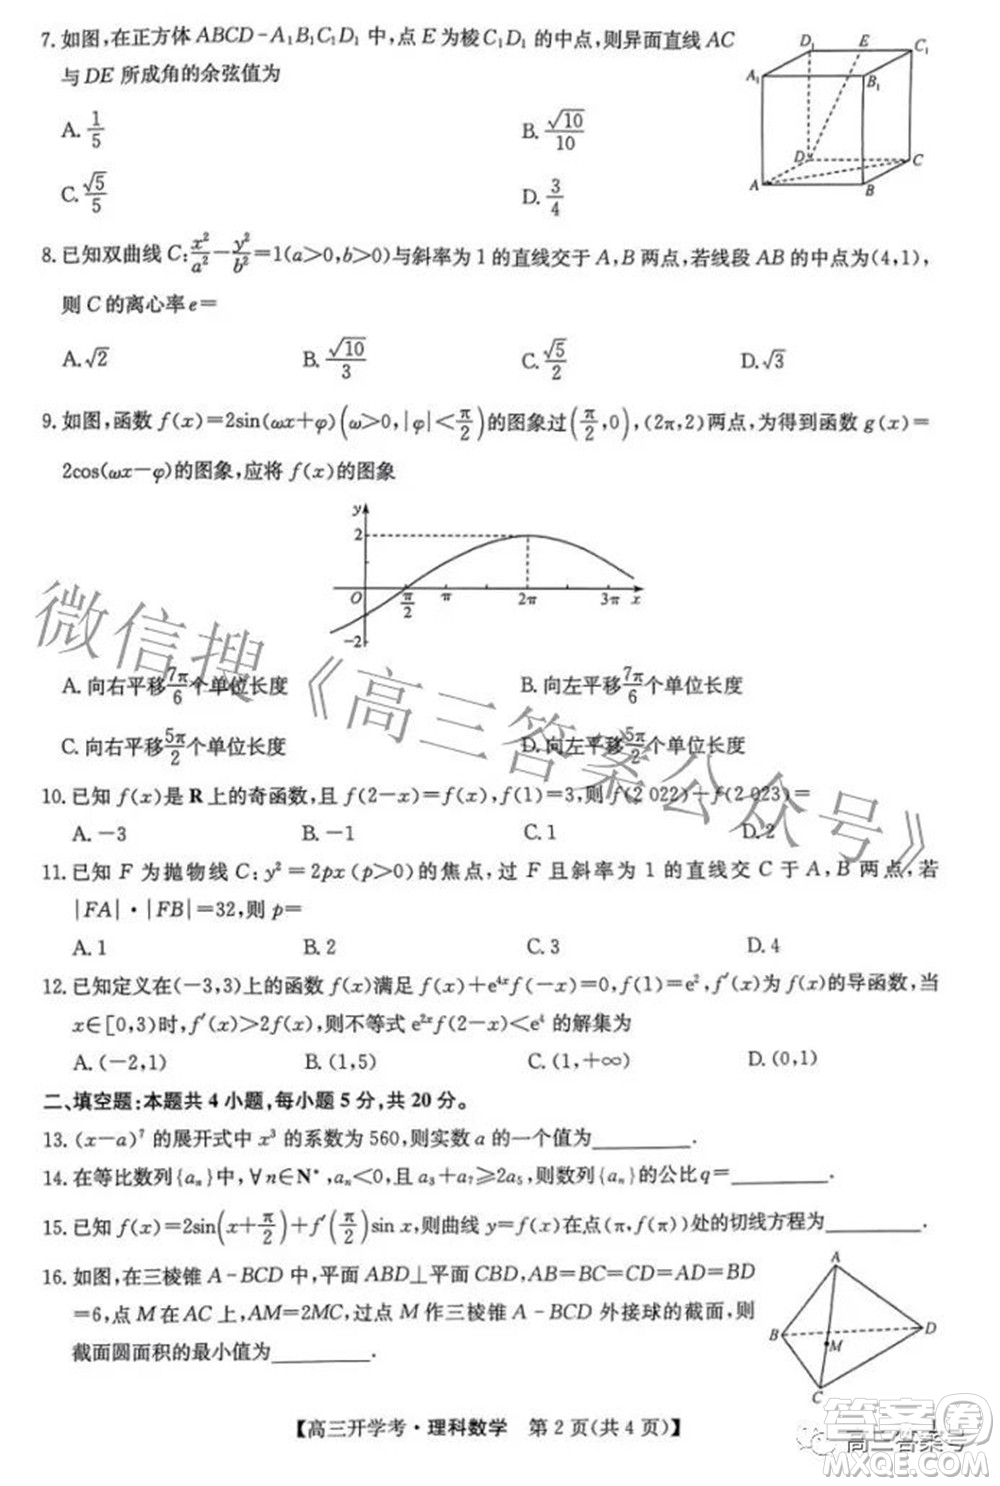 7. 如图,在正方体 ABCD-A₁B₁C₁D₁ 中,点 E 为棱 C₁D₁ 的中点,则异面直线 AC
与 DE 所成角的余弦值为
A. 1/5 B. √10/10
C. √5/5 D. 3/4
D₁ E C₁
A₁ B₁
D C
A B
8. 已知双曲线 C: x²/a² - y²/b² =1(a>0,b>0)与斜率为 1 的直线交于 A,B 两点,若线段 AB 的中点为(4,1),
则 C 的离心率 e=
A. √2 B. √10/3 C. √5/2 D. √3
9. 如图,函数 f(x)=2sin(ωx+φ)(ω>0,|φ|<π/2)的图象过(π/2,0),(2π,2)两点,为得到函数 g(x)=
2cos(ωx-φ)的图象,应将 f(x)的图象
y
2
O π/2 π 2π 3π x
-2
A. 向右平移7π/6个单位长度 B. 向左平移7π/6个单位长度
C. 向右平移5π/2个单位长度 D. 向左平移5π/2个单位长度
微信搜《高三答案公众号》
10. 已知 f(x)是 R 上的奇函数,且 f(2-x)=f(x),f(1)=3,则 f(2 022)+f(2 023)=
A. -3 B. -1 C. 1 D. 2
11. 已知 F 为抛物线 C: y²=2px(p>0)的焦点,过 F 且斜率为 1 的直线交 C 于 A,B 两点,若
|FA|·|FB|=32,则 p=
A. 1 B. 2 C. 3 D. 4
12. 已知定义在(-3,3)上的函数 f(x)满足 f(x)+e⁴ˣf(-x)=0,f(1)=e²,f′(x)为 f(x)的导函数,当
x∈[0,3)时,f′(x)>2f(x),则不等式 e²ˣf(2-x)<e⁴ 的解集为
A. (-2,1) B. (1,5) C. (1,+∞) D. (0,1)
二、填空题:本题共 4 小题,每小题 5 分,共 20 分。
13. (x-a)⁷ 的展开式中 x³ 的系数为 560,则实数 a 的一个值为________.
14. 在等比数列{aₙ}中,∀n∈N*,aₙ<0,且 a₃+a₇=2a₅,则数列{aₙ}的公比 q=________.
15. 已知 f(x)=2sin(x+π/2)+f′(π/2)sin x,则曲线 y=f(x)在点(π,f(π))处的切线方程为________.
16. 如图,在三棱锥 A-BCD 中,平面 ABD⊥平面 CBD,AB=BC=CD=AD=BD
=6,点 M 在 AC 上,AM=2MC,过点 M 作三棱锥 A-BCD 外接球的截面,则
截面圆面积的最小值为________.
A
B D
M
C
【高三开学考·理科数学 第 2 页(共 4 页)】
高三答案号
答案卷
MXQE.COM